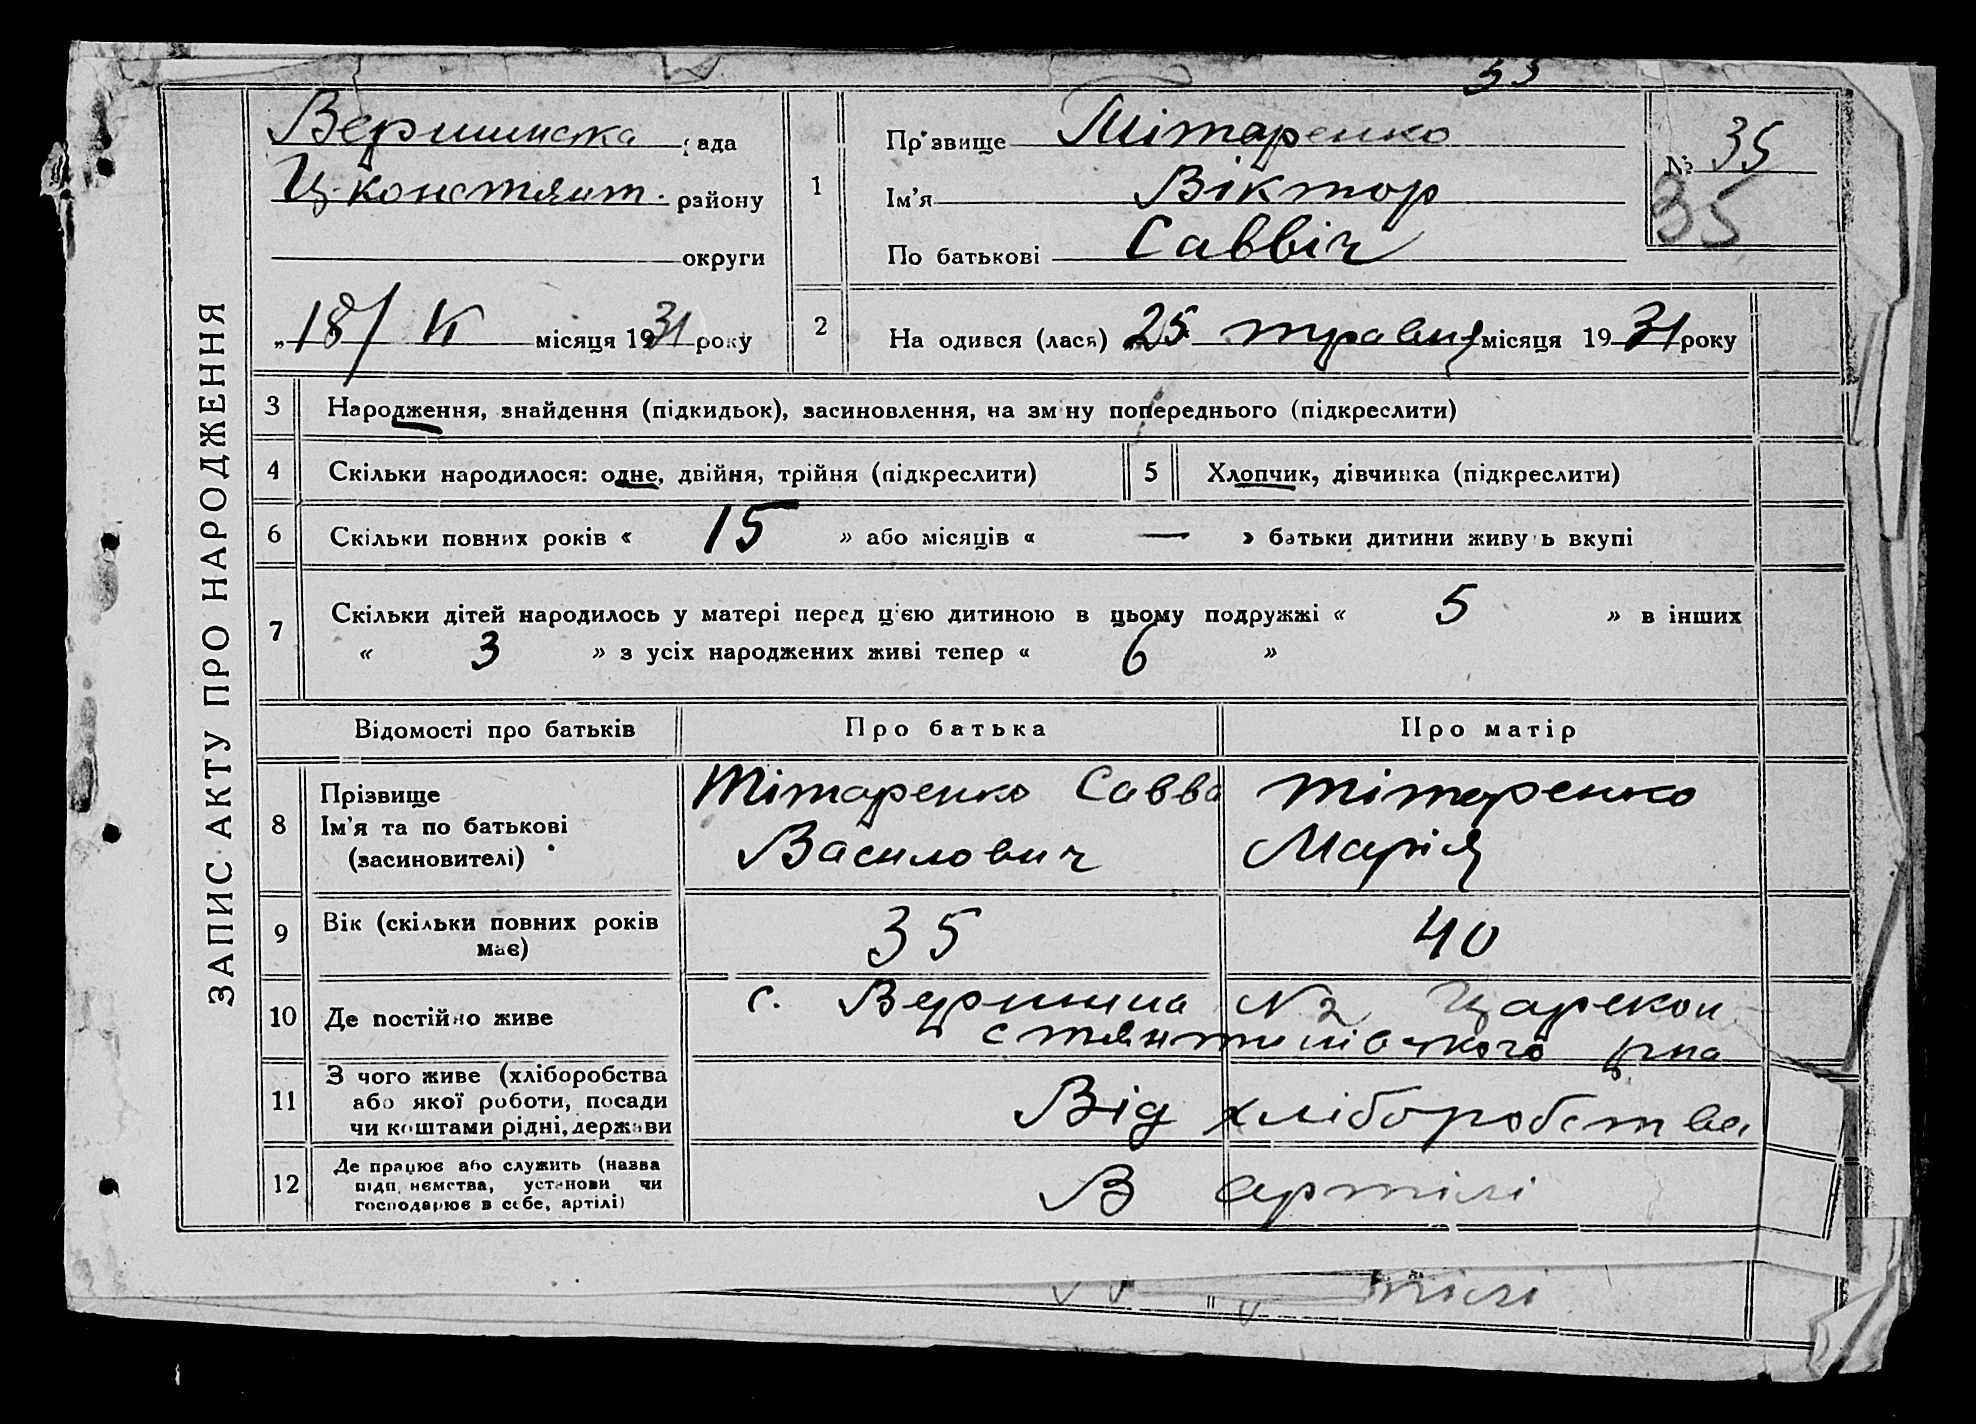 53
Вершинска рада
Ц-констянт. району
округи
„18/ VI місяця 1931 року
1
Прізвище Тітаренко
Ім'я Віктор
По батькові Саввіч
№ 35
35
2
На одився (лася) 25 травня місяця 1931 року
ЗАПИС АКТУ ПРО НАРОДЖЕННЯ
3 Народження, знайдення (підкидьок), засиновлення, на зміну попереднього (підкреслити)
4 Скільки народилося: одне, двійня, трійня (підкреслити) 5 Хлопчик, дівчинка (підкреслити)
6 Скільки повних років « 15 » або місяців « — » батьки дитини живуть вкупі
7 Скільки дітей народилось у матері перед цією дитиною в цьому подружжі « 5 » в інших
« 3 » з усіх народжених живі тепер « 6 »
Відомості про батьків Про батька Про матір
8 Прізвище
Ім'я та по батькові
(засиновителі)
Тітаренко Савва
Василович
Тітаренко
Марія
9 Вік (скільки повних років
має)
35 40
10 Де постійно живе
с. Вершина №2 Царекон
стянтинівского рна
11 З чого живе (хліборобства
або якої роботи, посади
чи коштами рідні, держави
Від хліборобства
12 Де працює або служить (назва
підприємства, установи чи
господарює в себе, артілі)
В артілі
тілі